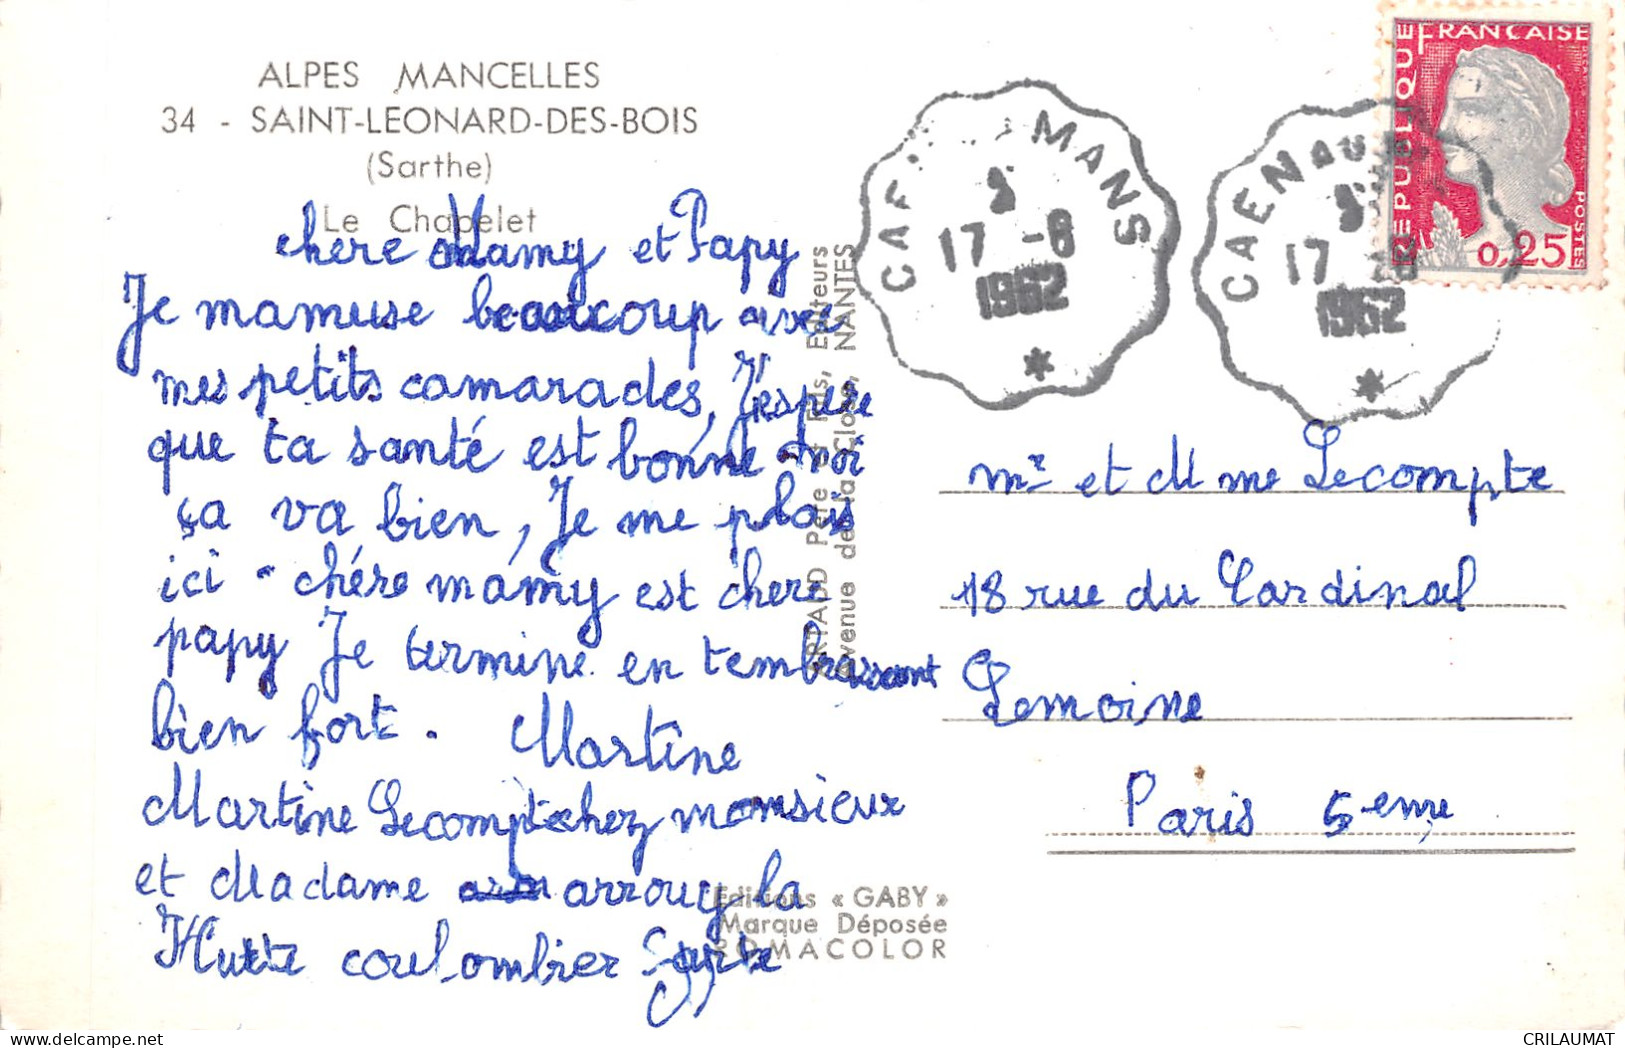 ALPES MANCELLES
34 - SAINT-LEONARD-DES-BOIS
(Sarthe)
Le Chapelet
chere Mamy et Papy
Je mamuse beaucoup avec
mes petits camarades, J'espere
que ta santé est bonne moi
ça va bien, Je me plais
ici - chére mamy est chere
papy Je termine en tembrassant
bien fort. Martine
Martine Lecompte chez monsieur
et Madame arrouy la
Hutte coulombier Sarthe
ARTAUD Père et Fils, Editeurs
Avenue de la Close, NANTES
Editions « GABY »
Marque Déposée
ROMACOLOR
MANS
17 -8
1962
CAEN AU
17 -8
1962
REPUBLIQUE FRANÇAISE
POSTES
0,25
mr et Mme Lecompte
18 rue du Cardinal
Lemoine
Paris 5eme
CRILAUMAT